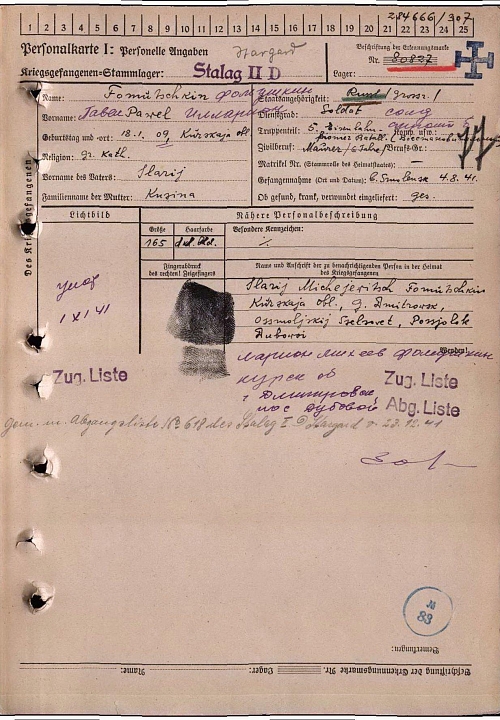 284666/307
1 2 3 4 5 6 7 8 9 10 11 12 13 14 15 16 17 18 19 20 21 22 23 24 25
Personalkarte I: Personelle Angaben
Stargard
Beschriftung der Erkennungsmarke
Nr. 80827
Kriegsgefangenen-Stammlager: Stalag II D
Lager:
Des Kriegsgefangenen
Name: Fomutschkin Фомушкин
Staatsangehörigkeit: Russ /
Vorname: Pawel
Dienstgrad: Soldat солд
Truppenteil: 5. Eisenbahn
Komp. usw.:
Geburtstag und -ort: 18.1.09, Kurskaja obl.
Zivilberuf: Maurer/6 Jahre/ Berufs-Gr.:
Religion: gr. Kath.
Matrikel Nr. (Stammrolle des Heimatstaates): —
Vorname des Vaters: Ilarij
Gefangennahme (Ort und Datum): b. Smolensk 4.8.41.
Familienname der Mutter: Kusina
Ob gesund, krank, verwundet eingeliefert: ges.
Lichtbild
Nähere Personalbeschreibung
Größe
Haarfarbe
Besondere Kennzeichen:
165
Fingerabdruck
des rechten! Zeigefingers
Name und Anschrift der zu benachrichtigenden Person in der Heimat
des Kriegsgefangenen
Ilarij Michejewitsch Fomutschkin
Kurskaja obl., g. Dmitrowsk,
Possjolok
Dubowoi
1 XI 41
Wenden!
Михеев Фомушкин
Курск об
г Дмитровск
пос Дубовой
Zug. Liste
Zug. Liste
Abg. Liste
Gem. m. Abgangsliste No 618 des Stalag II D Stargard v. 23.12.41
83
Bemerkungen:
Beschriftung der Erkennungsmarke Nr.
Lager:
Name: